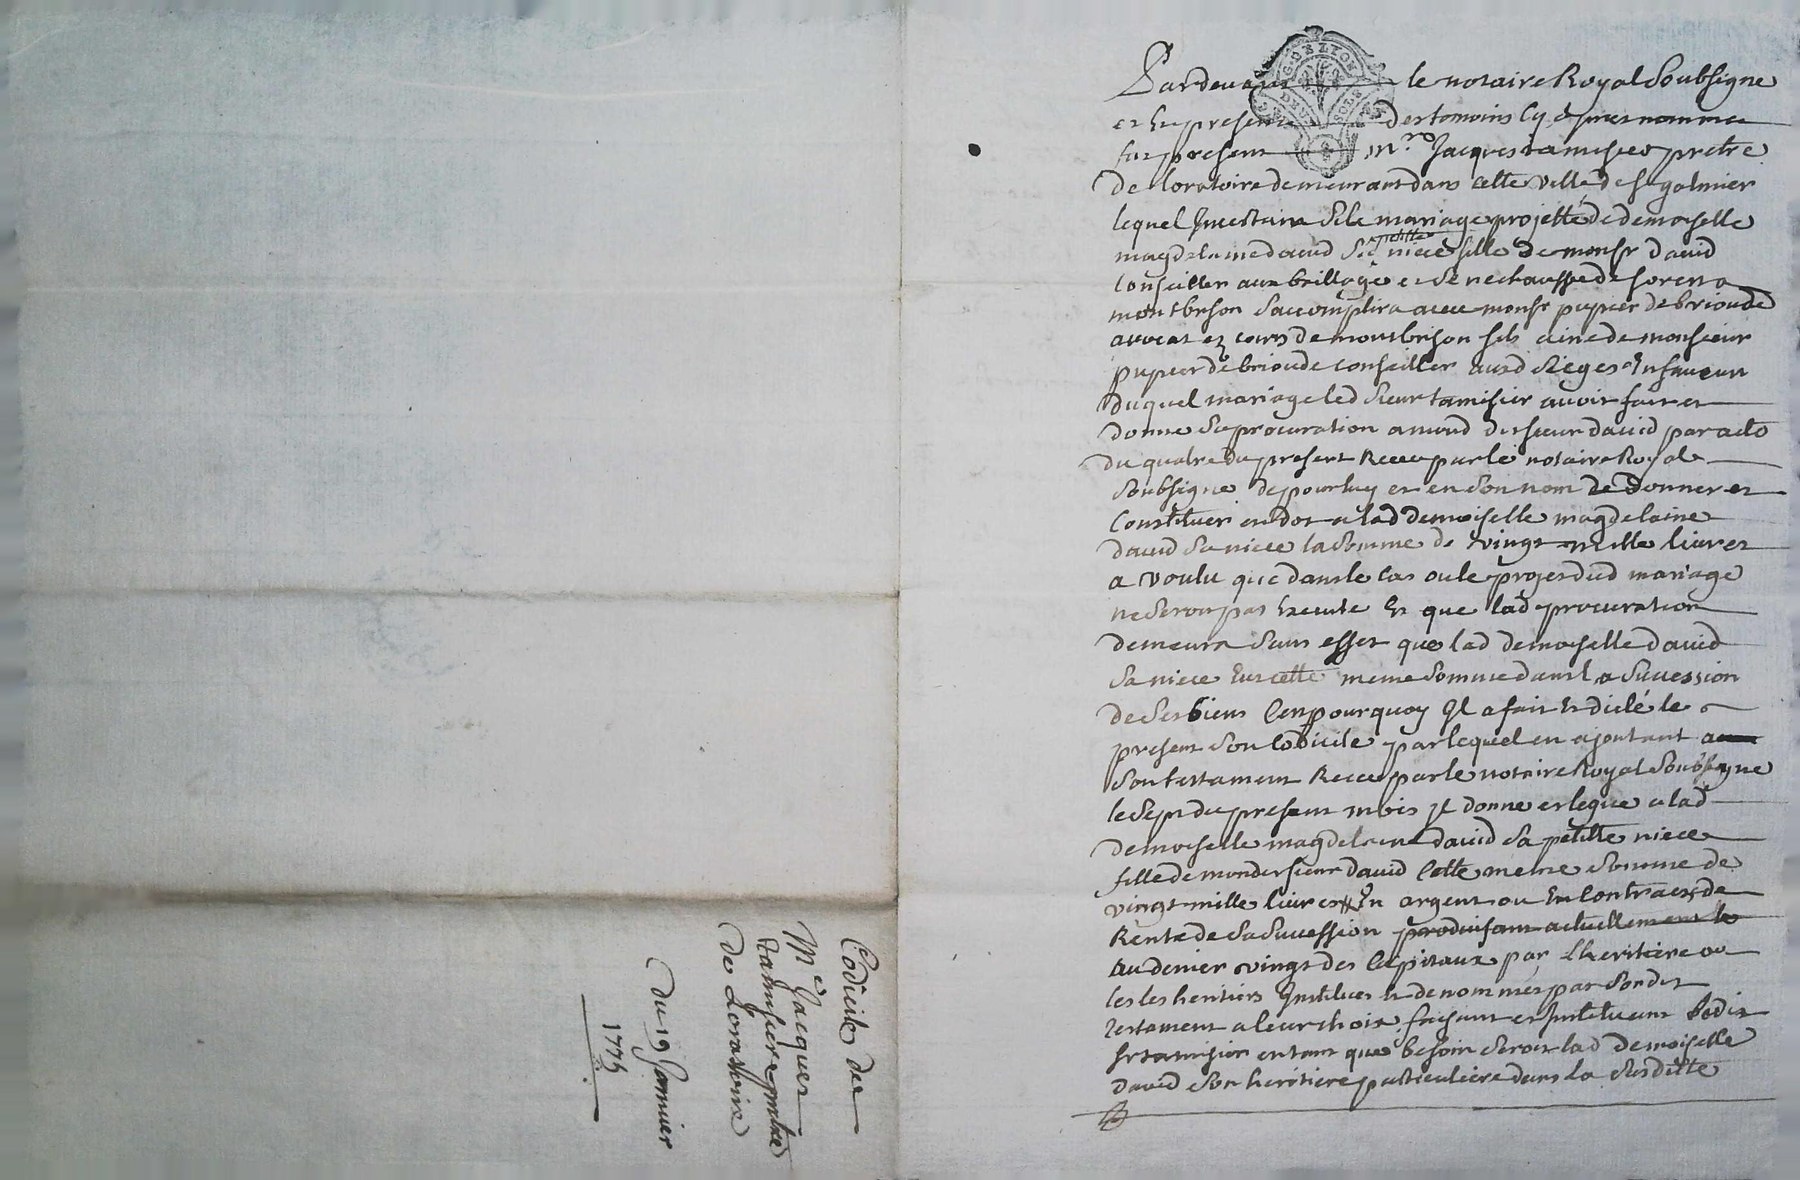 Codicile de
Mre Jacques
tamisier pretre
De Loratoire
Du 19 Janvier
1775
G. DE LYON
DEUX SOLS
Pardevant le notaire Royal Soubsigne
et En presence des temoins Cy apres nommes
fut present Mre Jacques tamisier pretre
De loratoire demeurant dans cette ville de st galmier
lequel Incertain Si le mariage projetté de demoiselle
magdelaine david Sad petitte niece fille de monsr david
Conseiller aux baillage et Senechaussée de forest a
montbrison Saccomplira avec monsr pupier de brioude
avocat ez cours de montbrison fils ainé de monsieur
pupier de brioude Conseiller auxd Sieges En faveur
Duquel mariage led Sieur tamisier avoir fait et
donné Sa procuration a mond dit sieur david par acte
du quatre du present Receu par le notaire Royal
Soubsigné de pour luy et en Son nom de Donner et
Constituer en dot a lad demoiselle magdelaine
david Sa niece la Somme de vingt mille livres
a voulu que dans le Cas ou le projet dud mariage
ne Seroit pas Executé Et que lad procuration
demeura Sans effet que lad demoiselle david
Sa niece Eut cette meme Somme dans la Succession
de Ses biens Cest pourquoy Il a fait Et dicté le
present Son Codicile par lequel en ajoutant a
Son testament Receu par le notaire Royal Soubsigne
le Sept du present mois Il donne et legue a lad
demoiselle magdelaine david Sa petitte niece
fille de mondit sieur david Cette meme Somme de
vingt mille livres En argent ou En Contracts de
Rente de Sa Succession produisant actuellement le
au denier vingt des Capitaux par Lheritiere ou
les heritiers Institués Et denommés par Sondit
testament a leur choix, faisant et Instituant ledit
sr tamisier en tant que besoin Seroit lad demoiselle
david Son heritiere particuliere dans la Susditte